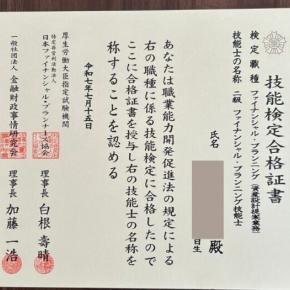 技能検定合格証書
検定職種 ファイナンシャル・プランニング（資産設計提案業務）
技能士の名称 二級ファイナンシャル・プランニング技能士
氏名
殿
日生
あなたは職業能力開発促進法の規定による
右の職種に係る技能検定に合格したので
ここに合格証書を授与し右の技能士の名称を
称することを認める
令和七年七月十五日
厚生労働大臣指定試験機関
特定非営利活動法人
日本ファイナンシャル・プランナーズ協会
理事長 白根壽晴
一般社団法人 金融財政事情研究会
理事長 加藤一浩